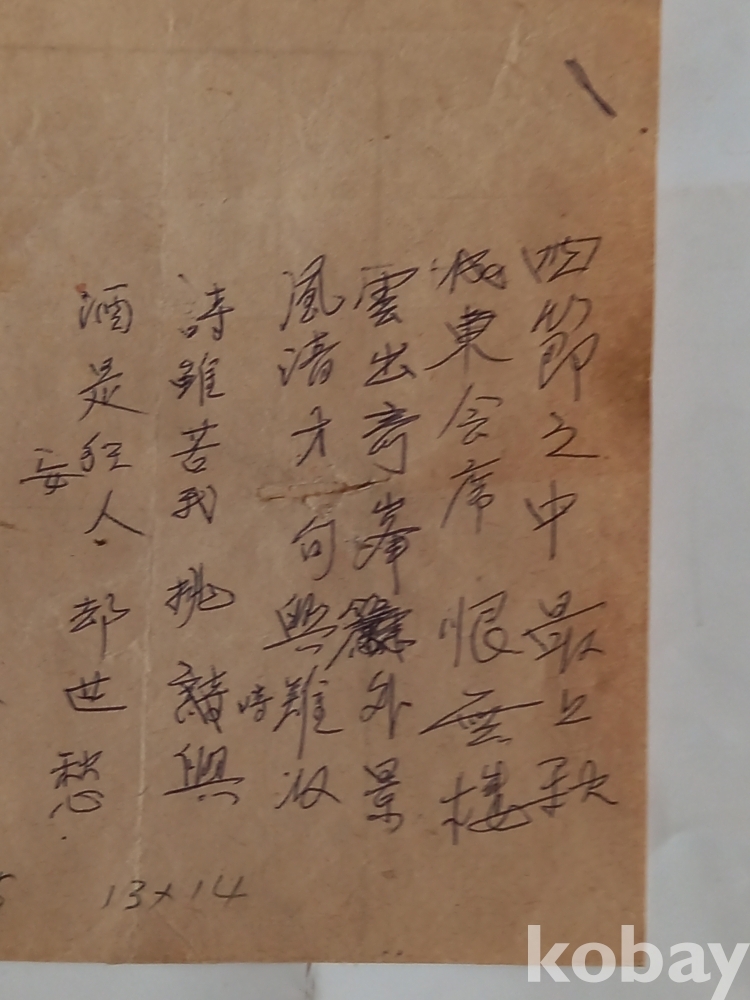 四節之中最上秋
東会席恨無樓
雲出奇峯外景
風清才句興難收
時
詩雖苦我挑興
酒是狂人却世愁
妄
13x14
kobay